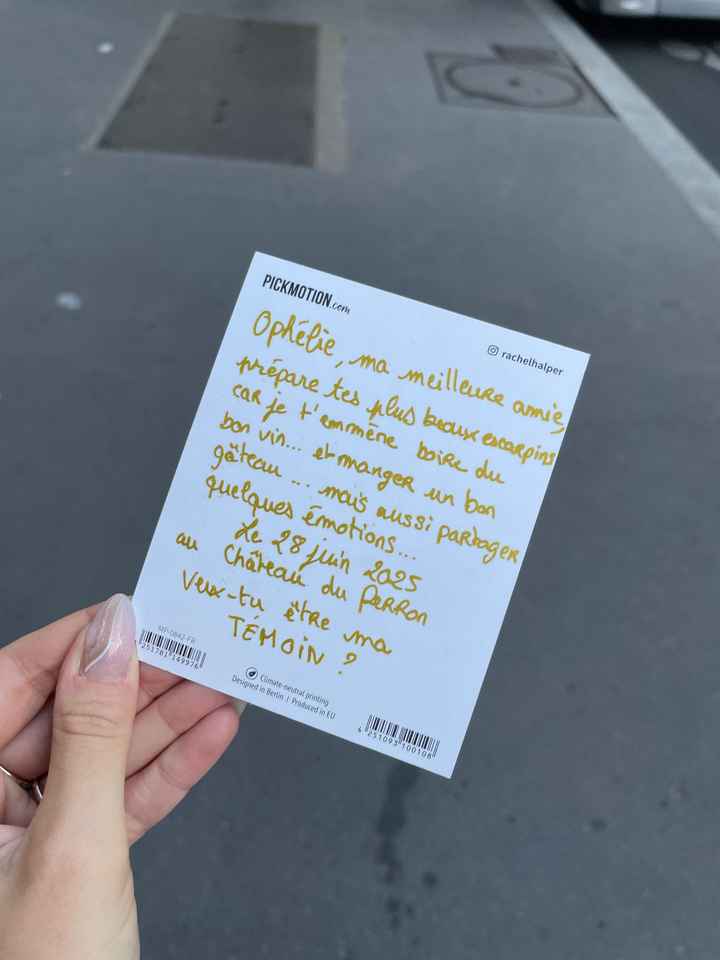 PICKMOTION.com
rachelhalper
Ophélie, ma meilleure amie,
prépare tes plus beaux escarpins
car je t'emmène boire du
bon vin... et manger un bon
gâteau... mais aussi partager
quelques émotions...
Le 28 juin 2025
au Château du Perron
Veux-tu être ma
TÉMOIN ?
MP-0842-FR
4 251781 149976
Climate-neutral printing
Designed in Berlin | Produced in EU
4 251093 100108